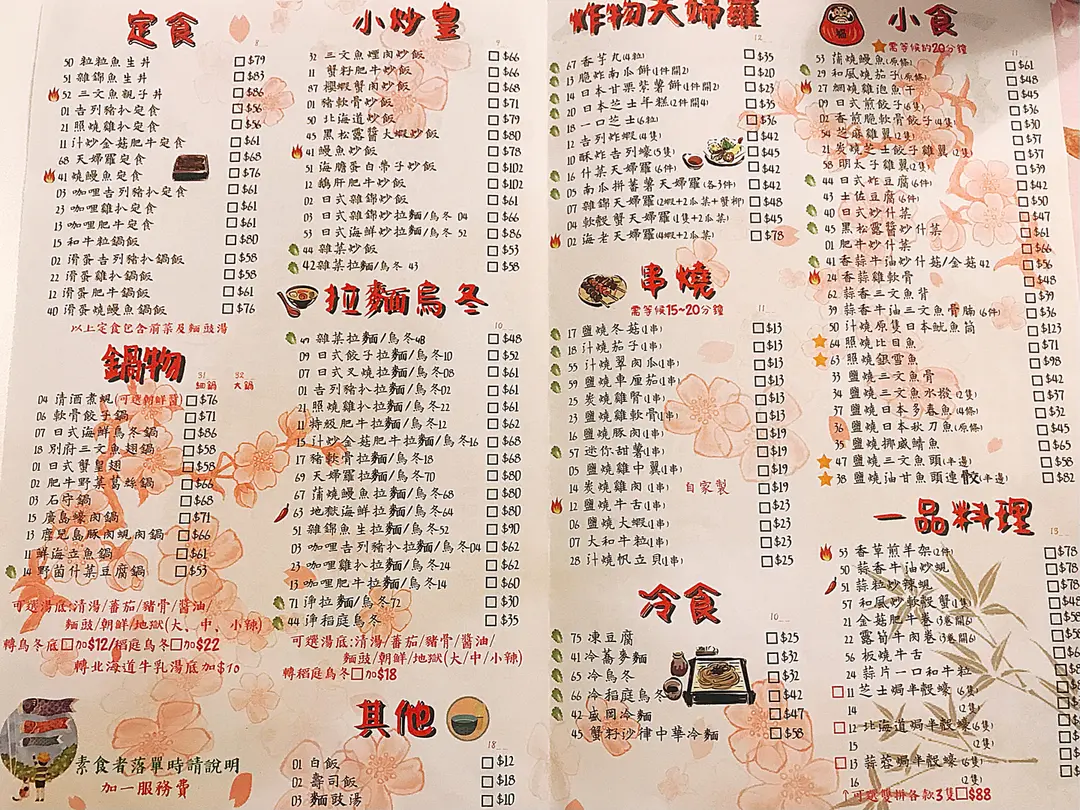 定食
8
50 粒粒魚生丼 $79
51 雜錦魚生丼 $83
52 三文魚親子丼 $86
01 吉列豬扒定食 $56
21 照燒雞扒定食 $56
11 汁炒金菇肥牛定食 $61
68 天婦羅定食 $68
41 燒鰻魚定食 $76
03 咖哩吉列豬扒定食 $61
23 咖哩雞扒定食 $61
13 咖哩肥牛定食 $61
15 和牛粒鍋飯 $80
02 滑蛋吉列豬扒鍋飯 $58
22 滑蛋雞扒鍋飯 $58
12 滑蛋肥牛鍋飯 $61
40 滑蛋燒鰻魚鍋飯 $76
以上定食包含前菜及麵豉湯
鍋物
31 32
細鍋 大鍋
04 清酒煮蜆(可選朝鮮醬) $76
06 軟骨餃子鍋 $71
07 日式海鮮烏冬鍋 $86
18 別府三文魚翅鍋 $58
01 日式蟹皇翅 $58
02 肥牛野菜葛絲鍋 $66
03 石守鍋 $68
15 廣島蠔肉鍋 $71
13 鹿兒島豚肉蜆肉鍋 $66
11 鮮海立魚鍋 $61
14 野菌什菜豆腐鍋 $53
可選湯底:清湯/蕃茄/豬骨/醬油/
麵豉/朝鮮/地獄(大、中、小辣)
轉烏冬底加$12/稻庭烏冬加$22
轉北海道牛乳湯底加$10
素食者落單時請說明
加一服務費
小炒皇
9
32 三文魚䱽肉炒飯 $66
11 蟹籽肥牛炒飯 $66
87 櫻蝦蟹肉炒飯 $68
01 豬軟骨炒飯 $71
50 北海道炒飯 $79
45 黑松露醬大蝦炒飯 $80
41 鰻魚炒飯 $80
51 海膽蛋白帶子炒飯 $102
12 鵝肝肥牛炒飯 $102
02 日式雜錦炒飯 $61
03 日式雜錦炒拉麵/烏冬 04 $66
53 日式海鮮炒拉麵/烏冬 52 $86
44 雜菜炒飯 $53
42 雜菜拉麵/烏冬 43 $58
拉麵烏冬
10
45 雜菜拉麵/烏冬48 $48
09 日式餃子拉麵/烏冬10 $52
07 日式叉燒拉麵/烏冬08 $61
01 吉列豬扒拉麵/烏冬02 $61
21 照燒雞扒拉麵/烏冬22 $61
11 特級肥牛拉麵/烏冬12 $62
15 汁炒金菇肥牛拉麵/烏冬16 $68
17 豬軟骨拉麵/烏冬18 $68
69 天婦羅拉麵/烏冬70 $68
67 蒲燒鰻魚拉麵/烏冬68 $80
63 地獄海鮮拉麵/烏冬64 $80
51 雜錦魚生拉麵/烏冬52 $90
03 咖哩吉列豬扒拉麵/烏冬04 $62
23 咖哩雞扒拉麵/烏冬24 $62
13 咖哩肥牛拉麵/烏冬14 $60
71 淨拉麵/烏冬72 $30
44 淨稻庭烏冬 $35
可選湯底:清湯/蕃茄/豬骨/醬油/
麵豉/朝鮮/地獄(大/中/小辣)
轉稻庭烏冬加$18
其他
18
01 白飯 $12
02 壽司飯 $18
03 麵豉湯 $10
炸物天婦羅
12
67 香芋丸(4粒) $35
13 脆炸南瓜餅(1件開2) $20
14 日本甘栗紫薯餅(1件開2) $23
20 日本芝士年糕(2件開4) $35
18 一口芝士(6粒) $36
12 吉列炸蝦(4隻) $42
10 酥炸吉列蠔(5隻) $45
16 什菜天婦羅(6件) $42
05 南瓜拼蕃薯天婦羅(各3件) $42
07 雜錦天婦羅(2蝦+2瓜菜+蟹柳) $48
04 軟殼蟹天婦羅(1隻+2瓜菜) $45
02 海老天婦羅(4蝦+2瓜菜) $78
串燒
需等候15~20分鐘
11
17 鹽燒冬菇(1串) $13
18 汁燒茄子(1串) $13
55 汁燒翠肉瓜(1串) $13
59 鹽燒車厘茄(1串) $13
25 炭燒雞腎(1串) $13
23 鹽燒雞軟骨(1串) $13
16 鹽燒豚肉(1串) $19
57 迷你甜薯(1串) $19
05 鹽燒雞中翼(1串) $19
14 炭燒雞肉(1串) 自家製 $19
12 鹽燒牛舌(1串) $23
06 鹽燒大蝦(1串) $23
07 大和牛粒(1串) $23
28 汁燒帆立貝(1串) $25
冷食
75 凍豆腐 $25
41 冷蕎麥麵 $32
65 冷烏冬 $32
66 冷稻庭烏冬 $42
42 盛岡冷麵 $47
45 蟹籽沙律中華冷麵 $58
小食
需等候約20分鐘
11
53 蒲燒鰻魚(原條) $61
29 和風燒茄子(原條) $48
27 網燒雞泡魚干 $45
09 日式煎餃子(6隻) $30
02 香煎脆軟骨餃子(4隻) $37
54 芝麻雞翼(2隻) $37
21 炭燒芝士餃子雞翼(2隻) $37
58 明太子雞翼(2件) $39
44 日式炸豆腐(6件) $42
43 土佐豆腐(6件) $50
40 日式炒什菜 $47
45 黑松露醬炒什菜 $61
01 肥牛炒什菜 $66
41 香蒜牛油炒什菇/金菇42 $56
24 香蒜雞軟骨 $48
62 蒜香三文魚背 $39
39 蒜香牛油三文魚骨腩(6件) $36
50 汁燒原隻日本魷魚筒 $123
64 照燒比目魚 $71
63 照燒銀雪魚 $98
33 鹽燒三文魚骨 $42
34 鹽燒三文魚水撥(2隻) $37
37 鹽燒日本多春魚(4條) $32
36 鹽燒日本秋刀魚(原條) $45
35 鹽燒挪威鯖魚 $65
47 鹽燒三文魚頭(半邊) $58
38 鹽燒油甘魚頭連鮫(半邊) $82
一品料理
13
53 香草煎羊架(2件) $78
50 蒜香牛油炒蜆 $78
51 蒜粒炒辣蜆 $78
57 和風炒軟殼蟹(1隻)
21 金菇肥牛卷(3卷開6)
22 露筍牛肉卷(3卷開6)
56 板燒牛舌
24 蒜片一口和牛粒
11 芝士焗半殼蠔 (6隻)
14 (2隻)
12 北海道焗半殼蠔(6隻)
15 (2隻)
13 蒜蓉焗半殼蠔 (6隻)
16 (2隻)
↑可選雙拼各款3隻$88